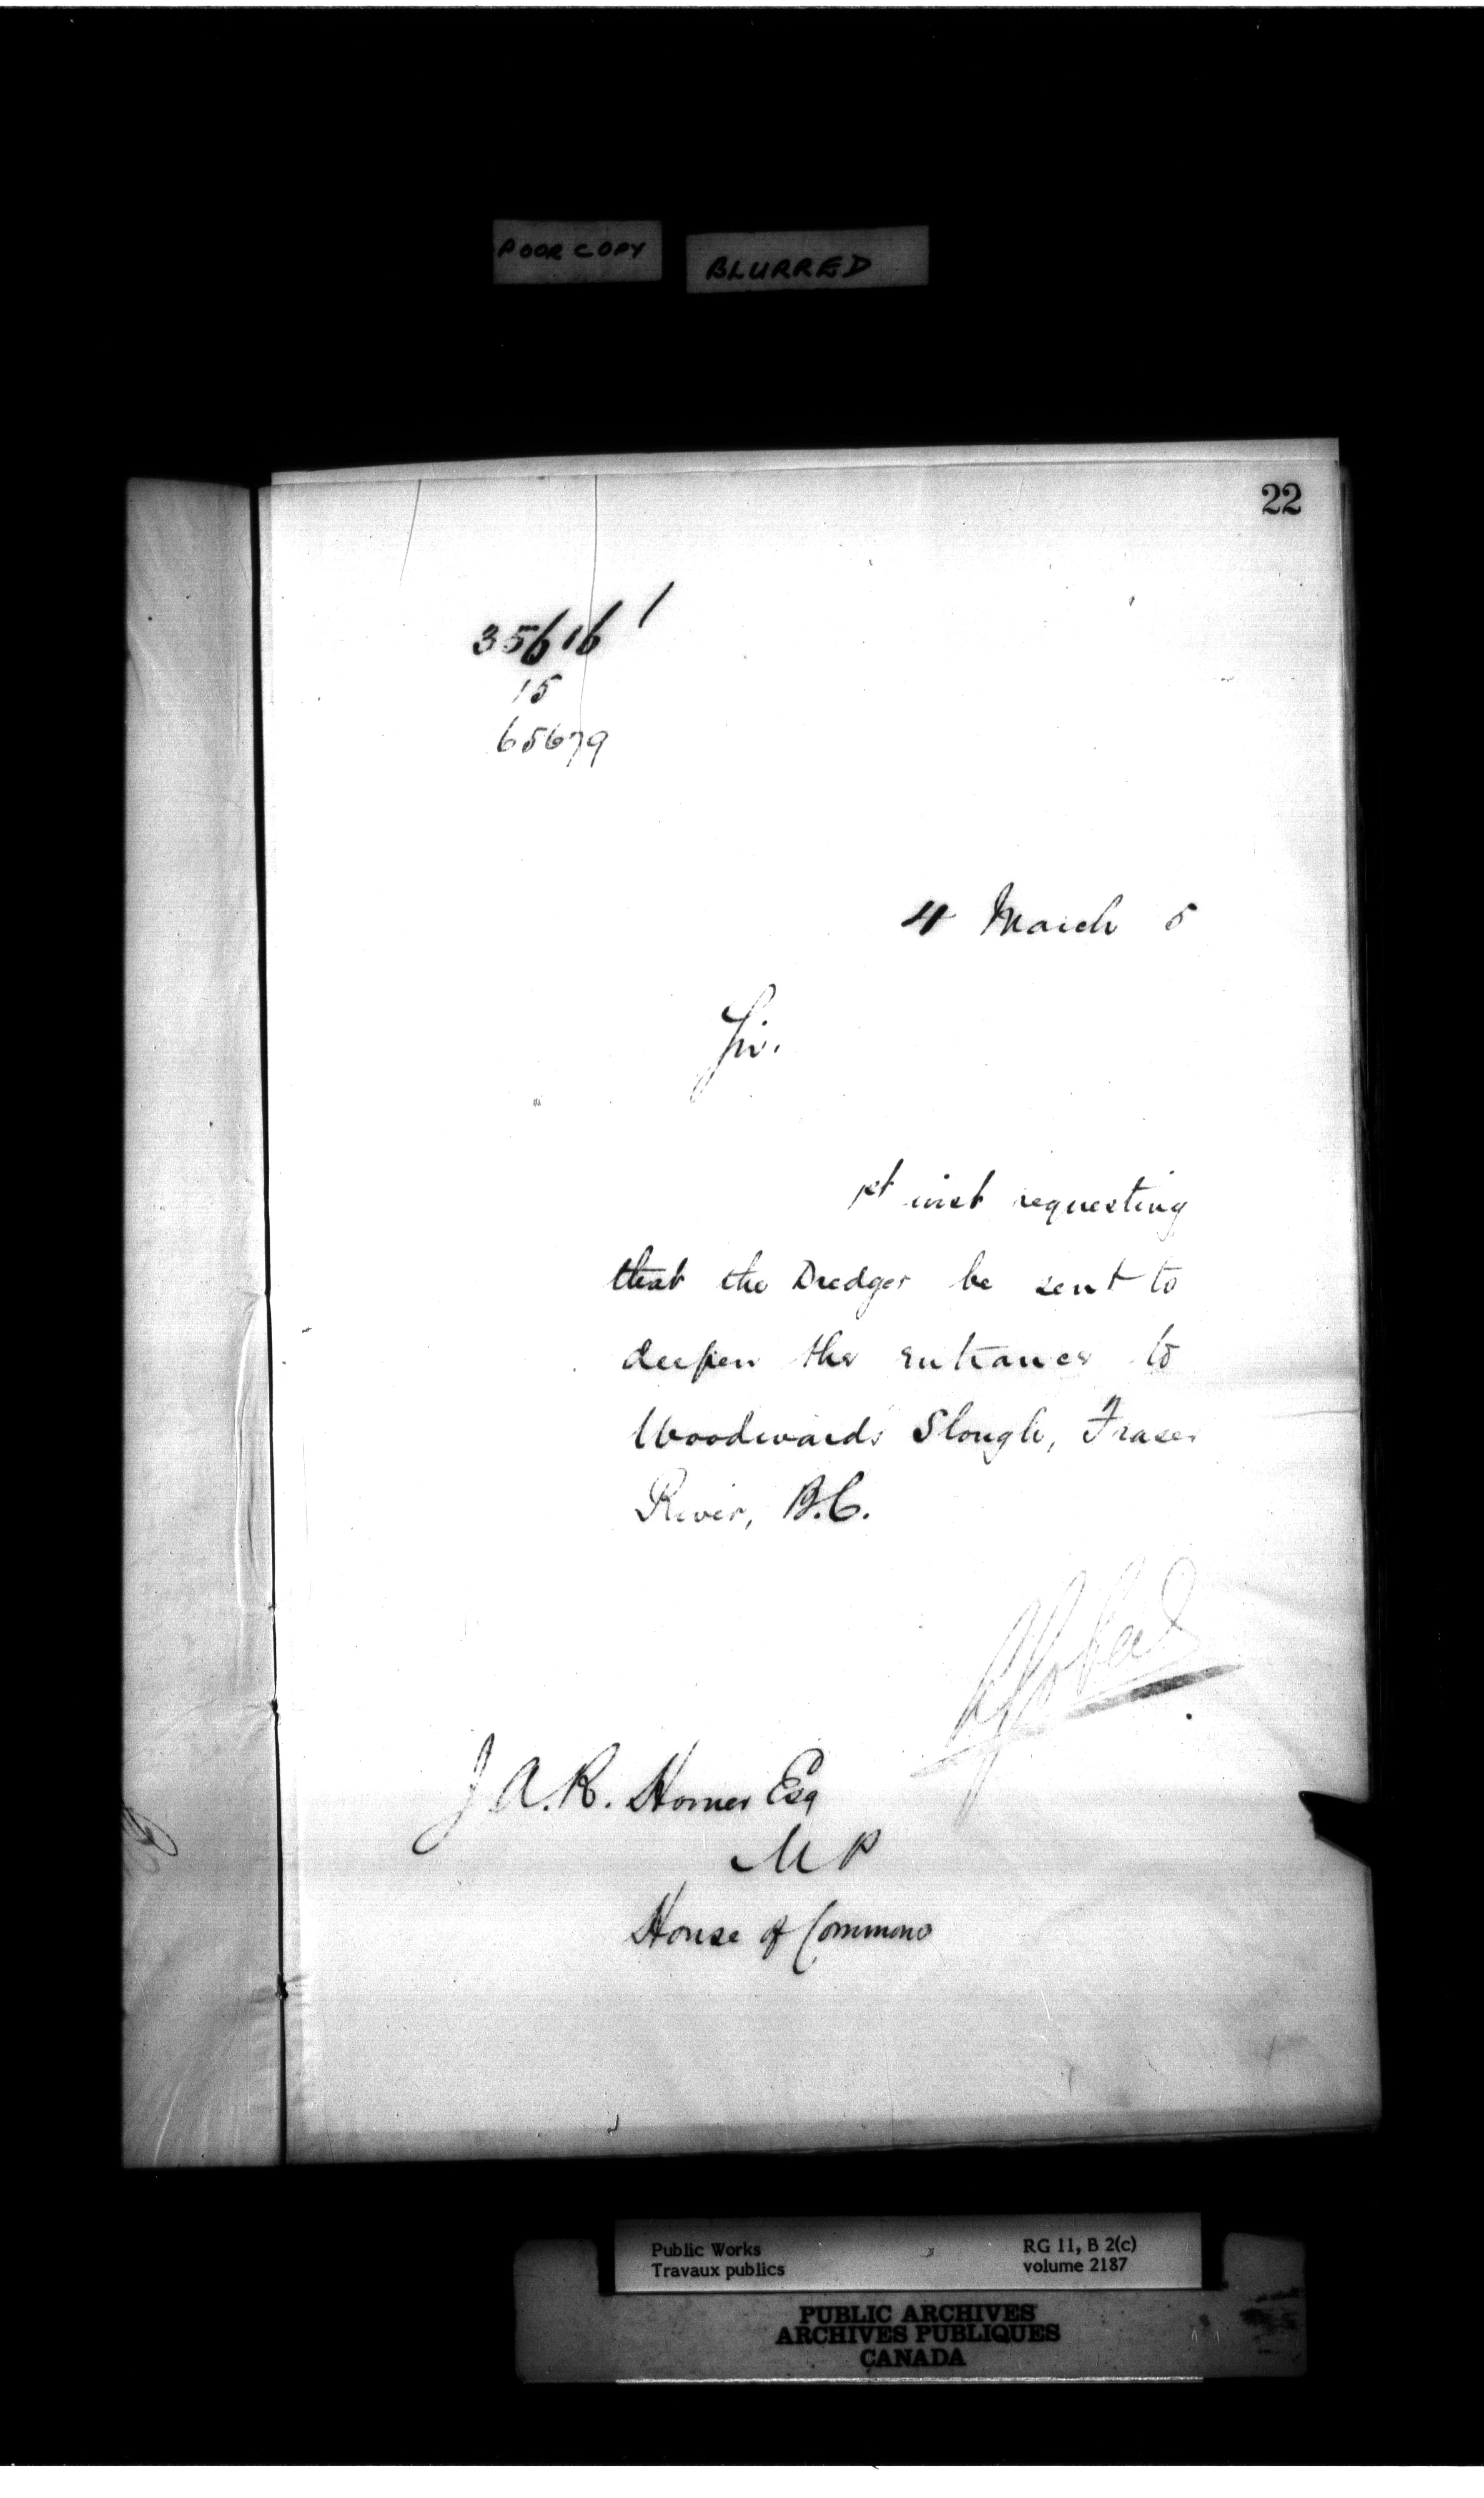 POOR COPY
BLURRED
22
35616
15
65679
4 March 5
Sir.
1st inst requesting
that the Dredger be sent to
deepen the entrance to
Woodwards Slough, Fraser
River, B.C.
J A. R. Homer Esq
M P
House of Commons
Public Works
Travaux publics
RG 11, B 2(c)
volume 2187
PUBLIC ARCHIVES
ARCHIVES PUBLIQUES
CANADA